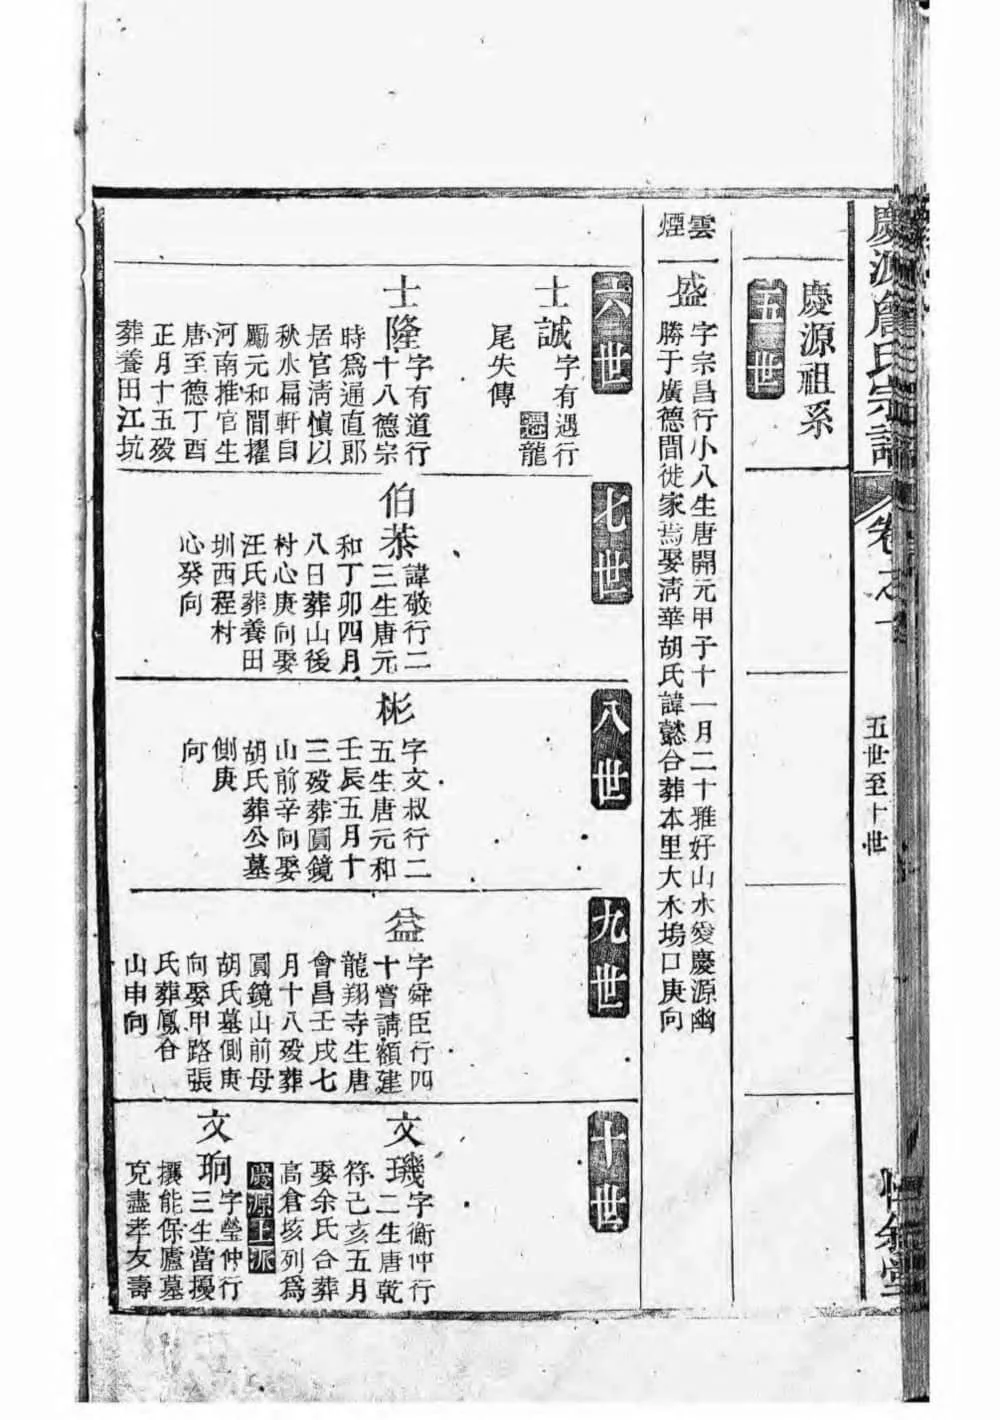 慶源詹氏宗譜
卷之一
五世至十世
慶源祖系
五世
雲
煙
盛
字宗昌行小八生唐開元甲子十一月二十雅好山水愛慶源幽
勝于廣德間徙家焉娶清華胡氏諱懿合葬本里大木塢口庚向
六世
士誠
字有遇行
龍
尾失傳
士隆
字有道行
十八德宗
時為通直郎
居官清慎以
秋水扁軒自
勵元和間擢
河南推官生
唐至德丁酉
正月十五歿
葬養田江坑
七世
伯恭
諱敬行二
三生唐元
和丁卯四月
八日葬山後
村心庚向娶
汪氏葬養田
圳西程村
心癸向
八世
彬
字文叔行二
五生唐元和
壬辰五月十
三歿葬圓鏡
山前辛向娶
胡氏葬公墓
側庚
向
九世
益
字舜臣行四
十嘗請額建
龍翔寺生唐
會昌壬戌七
月十八歿葬
圓鏡山前母
胡氏墓側庚
向娶甲路張
氏葬鳳合
山申向
十世
文璣
字衡仲行
二生唐乾
符己亥五月
娶余氏合葬
高倉垓列為
慶源上派
文珦
字瑩仲行
三生當擾
攘能保廬墓
克盡孝友壽